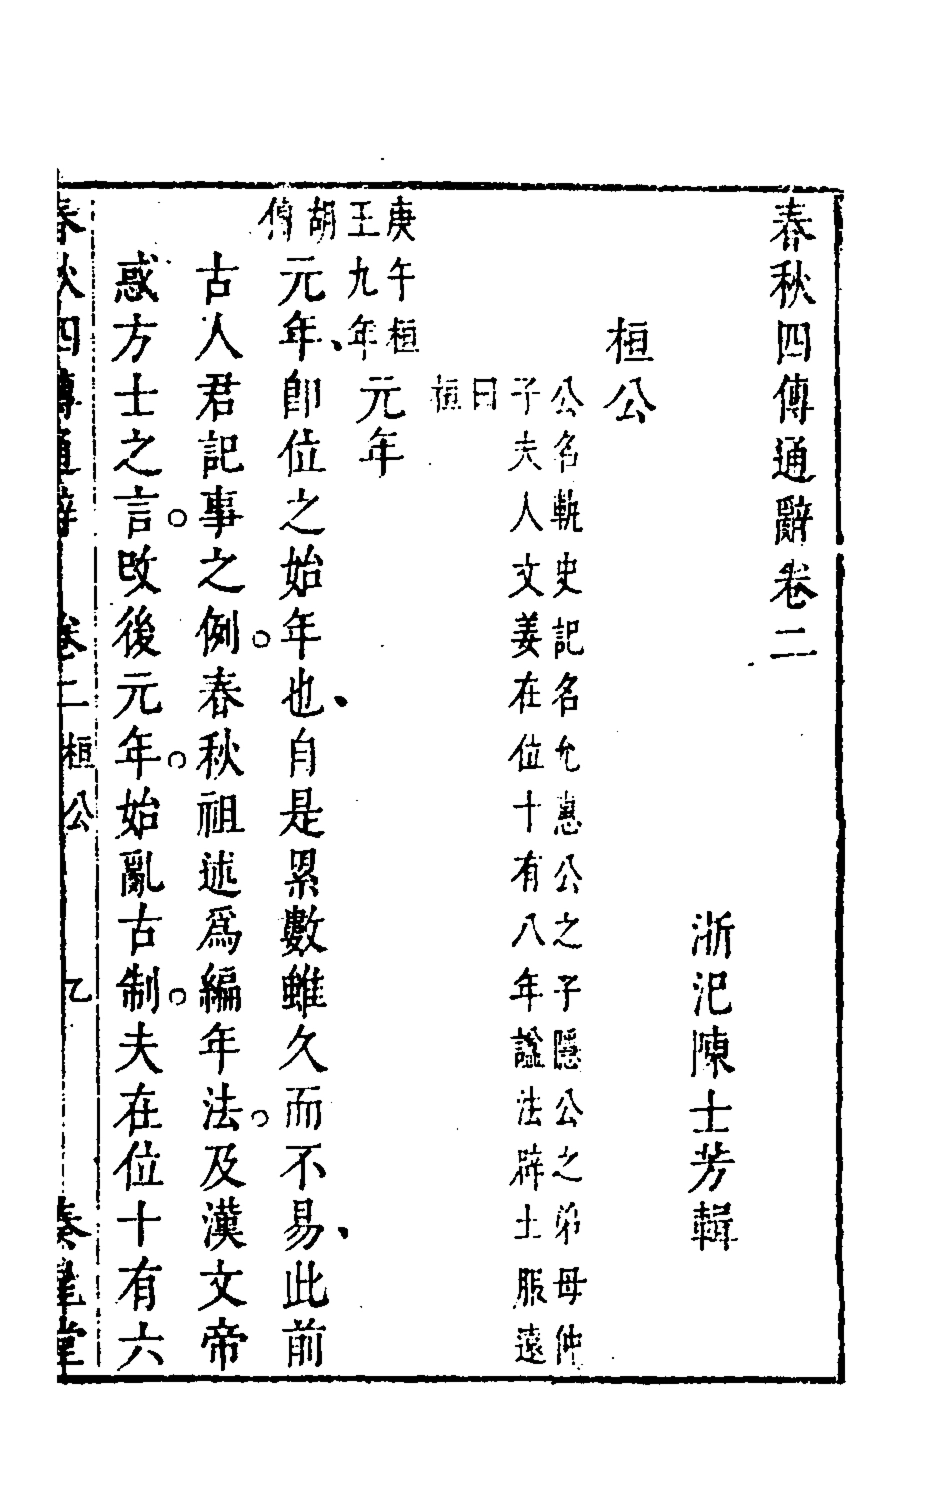 春秋四傳通辭卷二
浙汜陳士芳輯
桓公
公名軌史記名允惠公之子隱公之弟母仲
子夫人文姜在位十有八年諡法辟土服遠
曰
桓
庚午桓
王九年
元年
胡傳
元年即位之始年也自是累數雖久而不易此前
古人君記事之例春秋祖述為編年法及漢文帝
惑方士之言改後元年始亂古制夫在位十有六
春秋四傳通辭 卷二 桓公